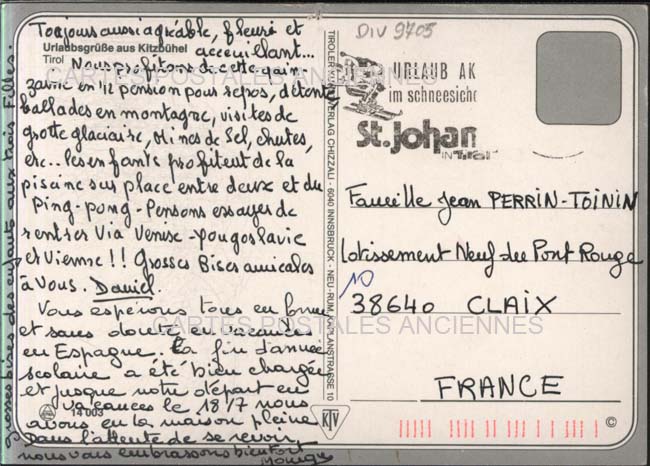 Toujours aussi agréable, fleuri et
Urlaubsgrüße aus Kitzbühel
Tirol
accueillant...
Nous profitons de cette quin-
zaine en 1/2 pension pour repos, détente
ballades en montagne, visites de
grotte glaciaire, Mines de Sel, chutes,
etc... les enfants profitent de la
piscine sur place entre deux et du
Ping-pong - Pensons essayer de
rentrer Via Venise - Yougoslavie
et Vienne !! Grosses Bises amicales
à Vous. Daniel.
Vous espérons tous en forme
et sans doute en vacances
en Espagne. La fin d'année
scolaire a été bien chargée
et jusque notre départ en
vacances le 18/7 nous
14 003
avons eu la maison pleine
Dans l'attente de se revoir,
nous vous embrassons bien fort
Grosses bises des enfants aux trois Filles.
TIROLER KUNSTVERLAG CHIZZALI - 6040 INNSBRUCK - NEU-RUM, KAPLANSTRASSE 10
KTV
DIV 9705
URLAUB AK
im schneesiche
St. Johan
IN TIROL
Famille Jean PERRIN-TOININ
Lotissement Neuf du Pont Rouge
10
38640 CLAIX
FRANCE
©
CARTES POSTALES ANCIENNES
CARTES POSTALES ANCIENNES